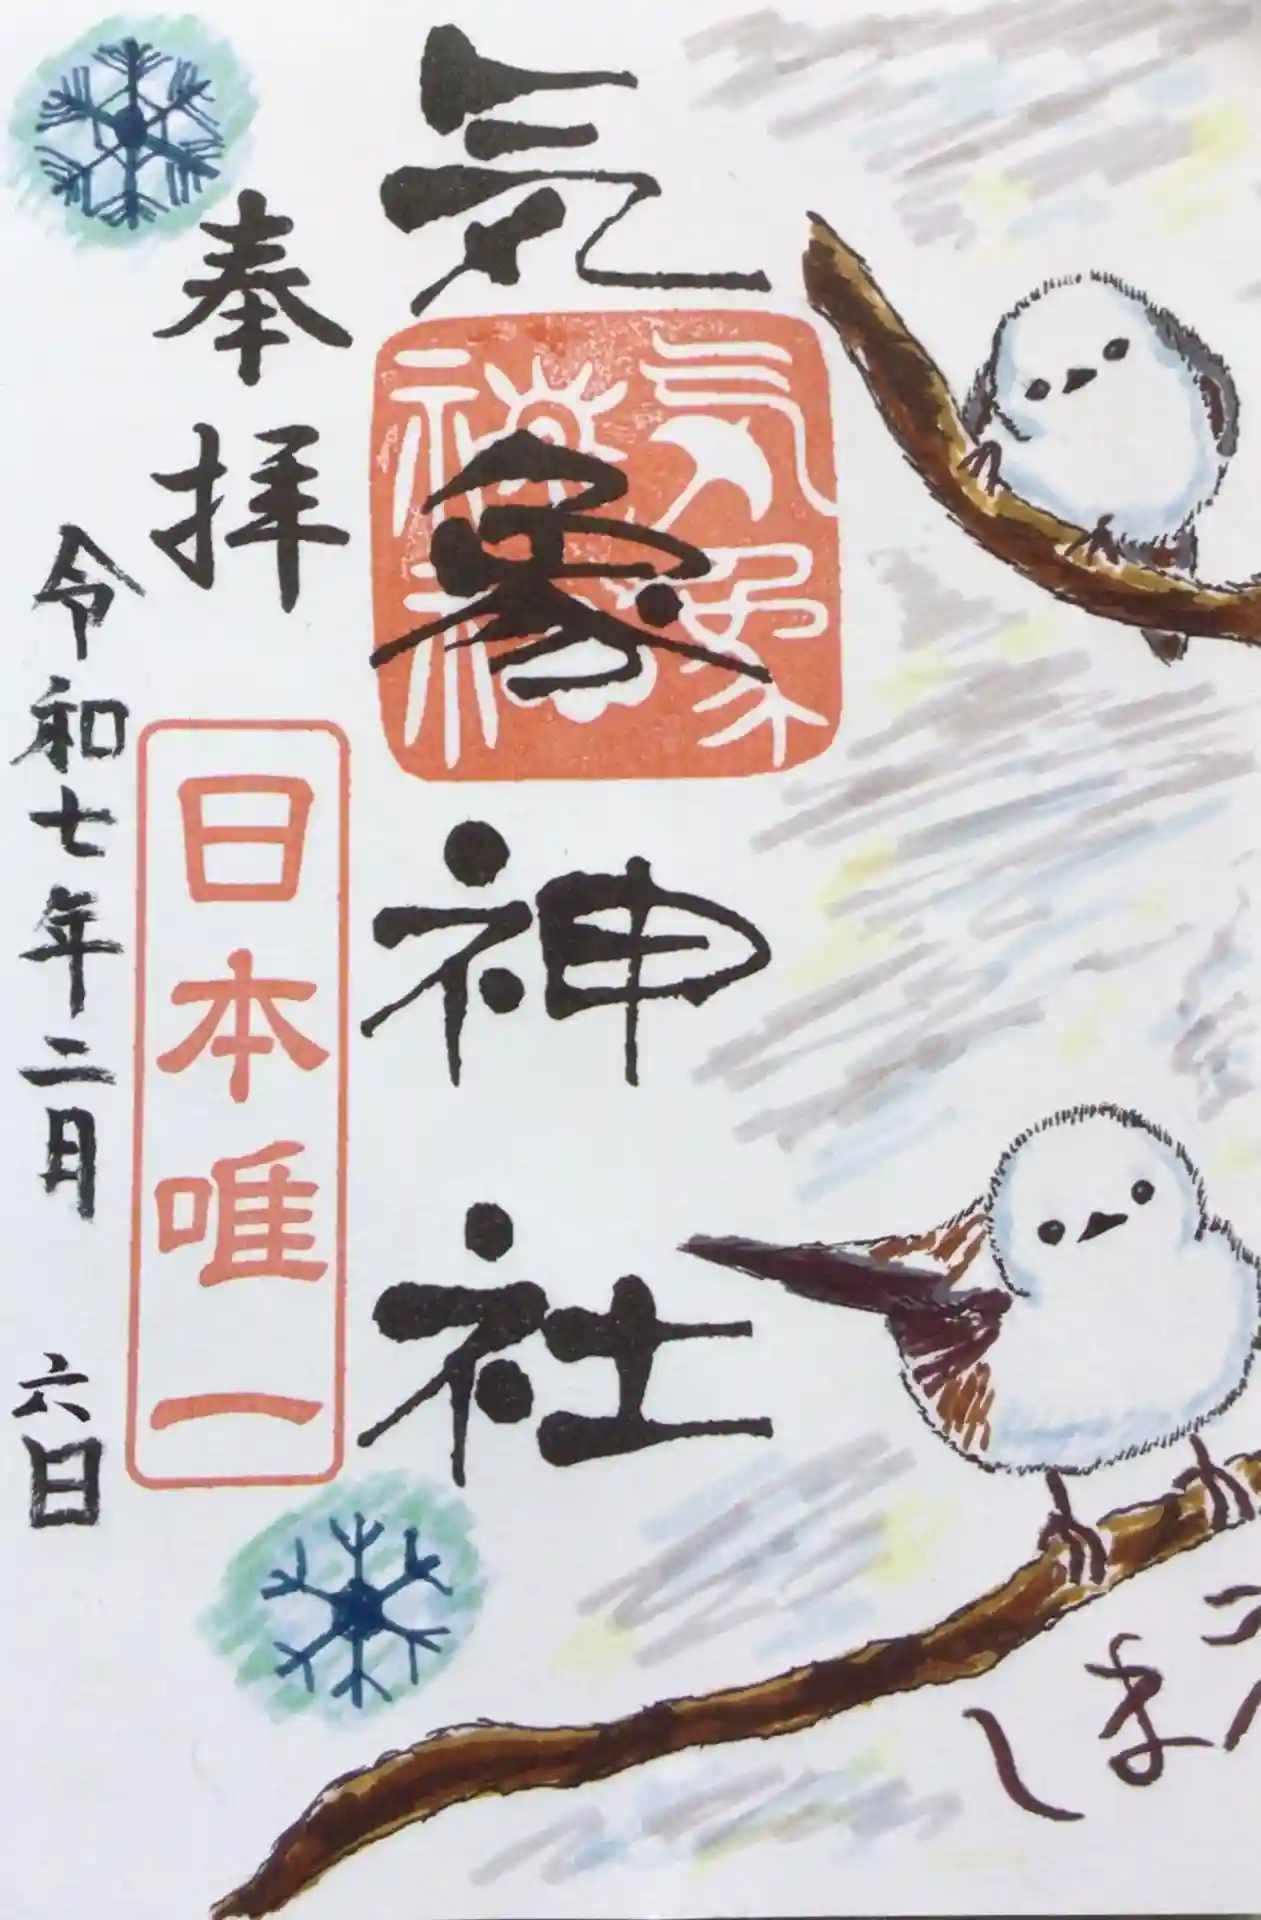 気象神社
気象神社
奉拝
日本唯一
令和七年二月 六日
しま